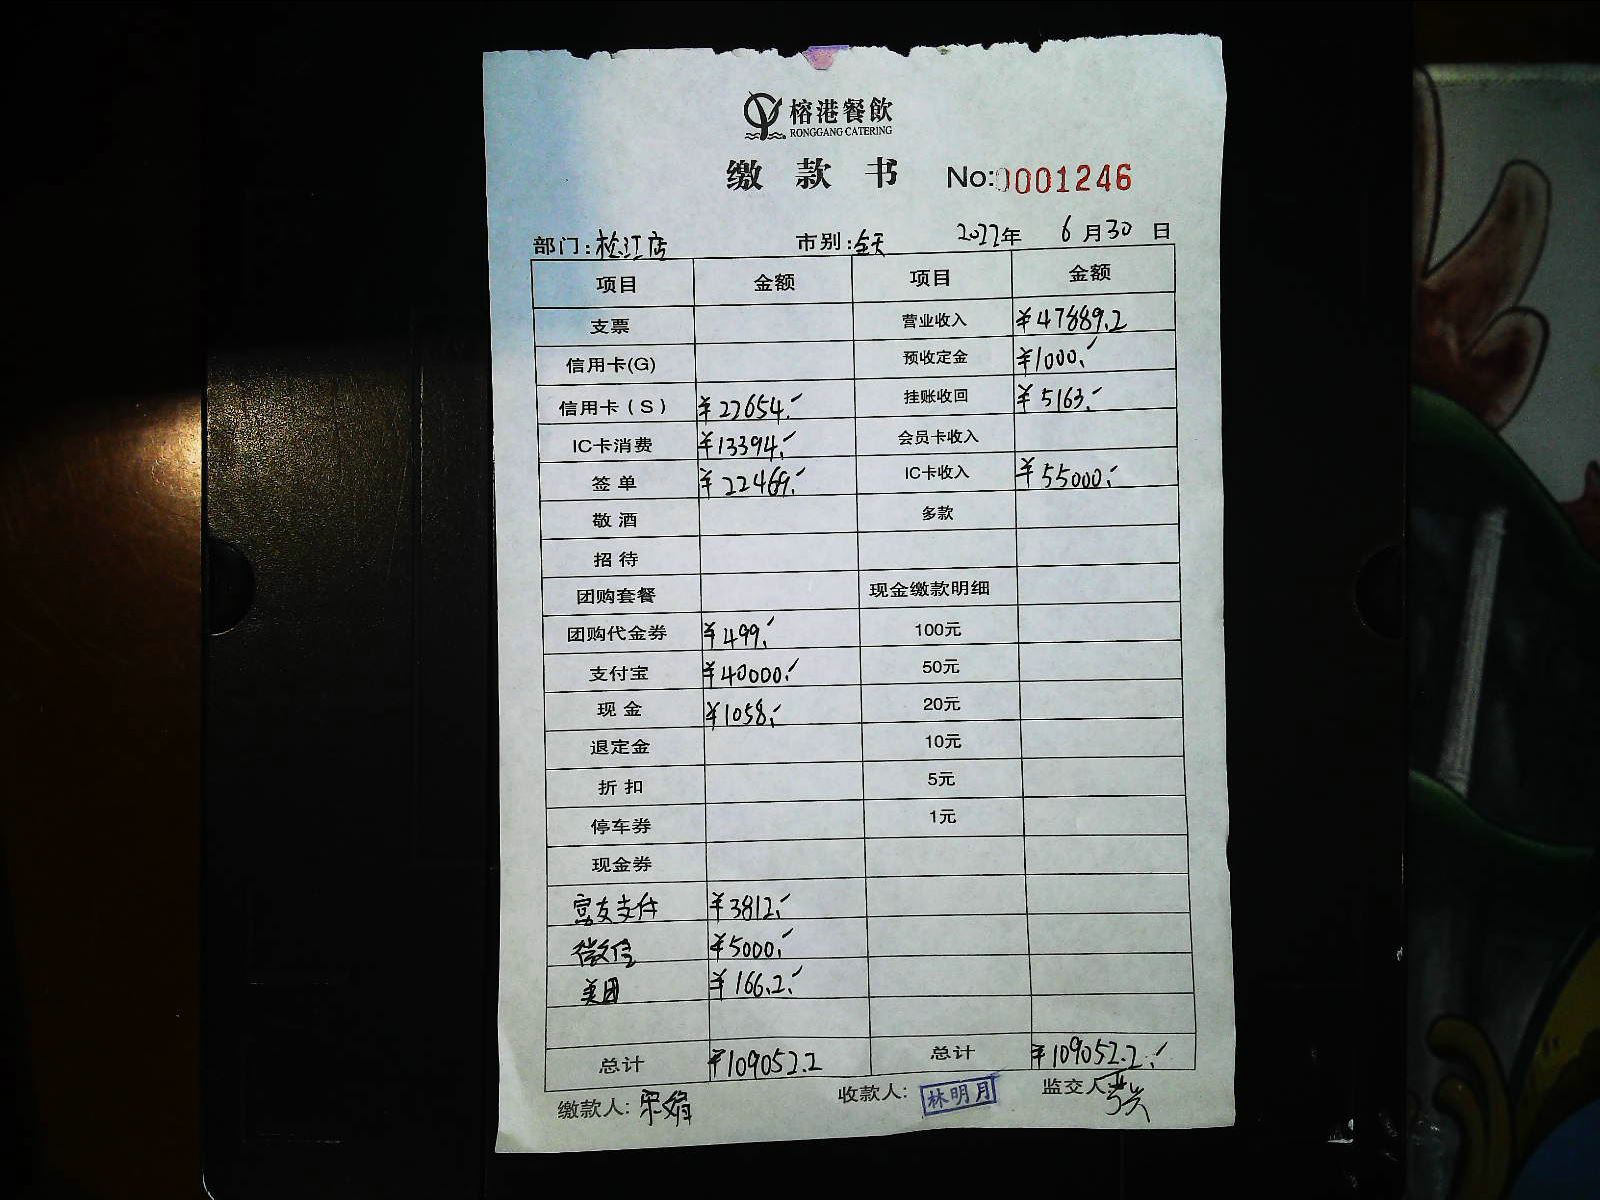 榕港餐飲
RONGGANG CATERING
缴款书 No:0001246
部门:松江店 市别:全天 2022年 6月30日
项目 金额 项目 金额
支票 营业收入 ¥47889.2
信用卡(G) 预收定金 ¥1000.-
信用卡(S) ¥22654.- 挂账收回 ¥5163.-
IC卡消费 ¥13394.- 会员卡收入
签单 ¥22469.- IC卡收入 ¥55000.-
敬酒 多款
招待
团购套餐 现金缴款明细
团购代金券 ¥499.- 100元
支付宝 ¥40000.- 50元
现金 ¥1058.- 20元
退定金 10元
折扣 5元
停车券 1元
现金券
富友支付 ¥3812.-
微信 ¥5000.-
美团 ¥166.2.-
总计 ¥109052.2 总计 ¥109052.2.-
缴款人:宋娟 收款人:林明月 监交人